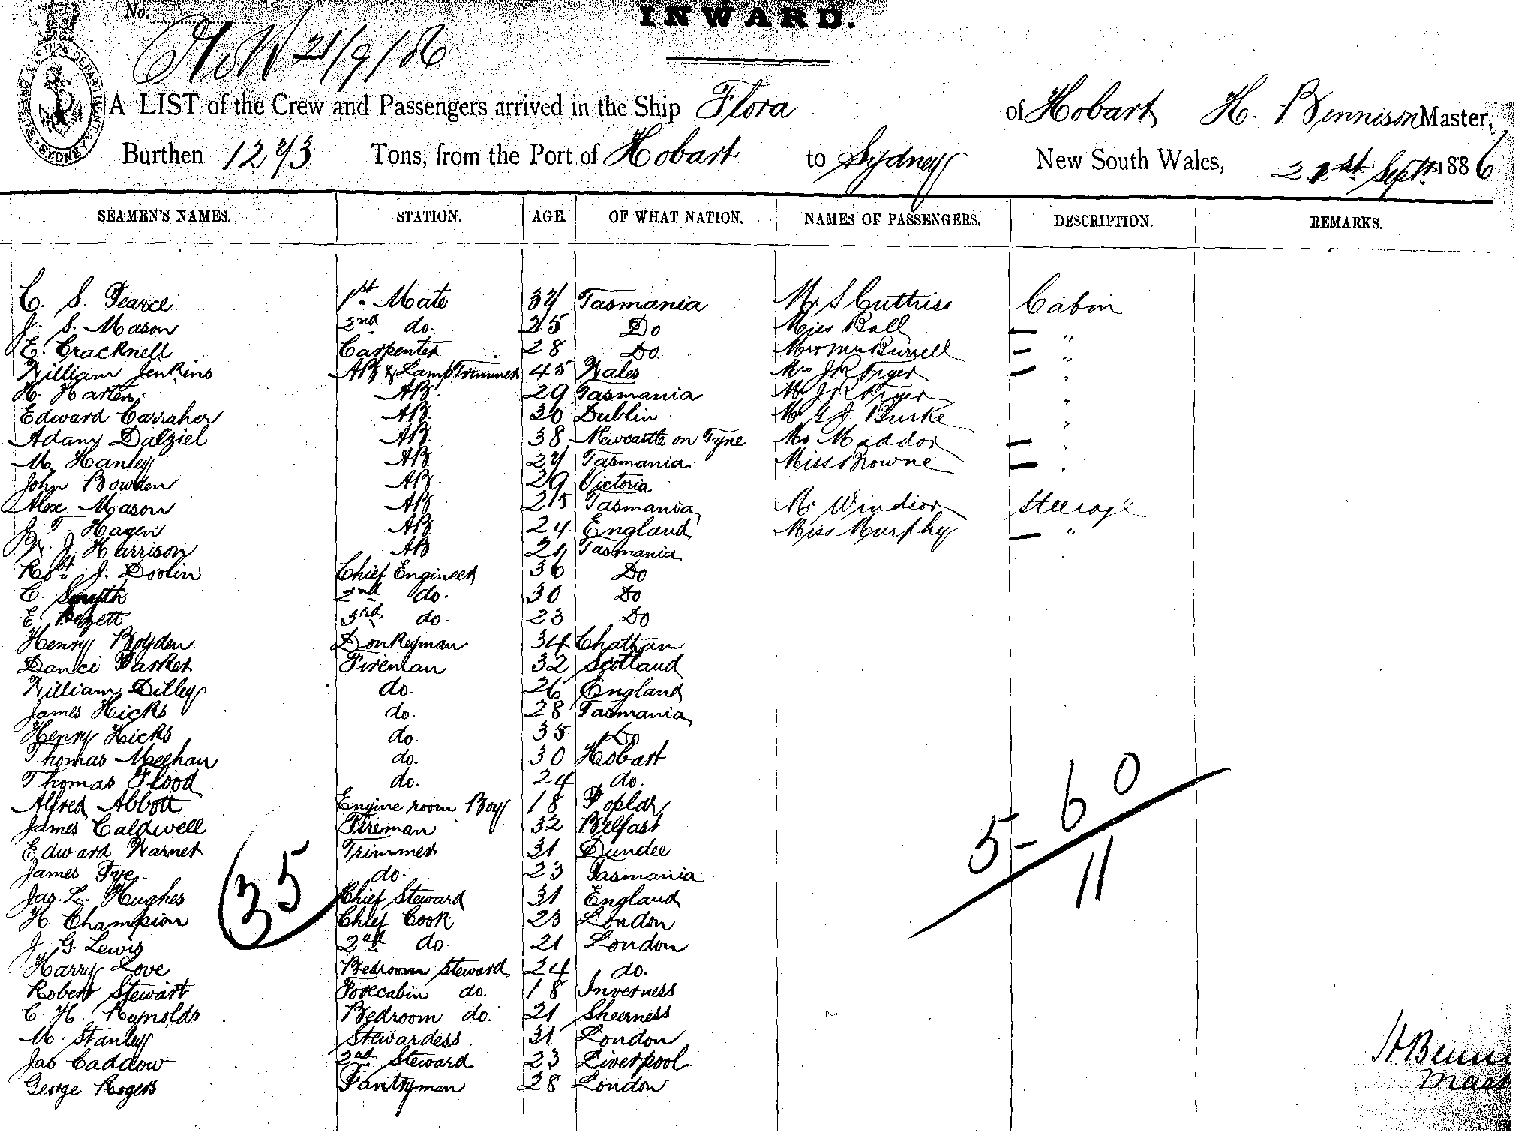 No.
INWARD.
21/9/86
A LIST of the Crew and Passengers arrived in the Ship Flora of Hobart H. Bennison Master,
Burthen 1273 Tons, from the Port of Hobart to Sydney New South Wales, 21st Sept 1886
SEAMEN'S NAMES. STATION. AGE. OF WHAT NATION. NAMES OF PASSENGERS. DESCRIPTION. REMARKS.
C. S. Pearce 1st Mate 37 Tasmania Mr S Guthrie Cabin
J. S. Mason 2nd do. 25 Do Miss Ball — "
E. Cracknell Carpenter 28 Do Burrell — "
William Jenkins AB & Lamp Trimmer 45 Wales —
H. Harten AB 29 Tasmania "
Edward Carraher AB 30 Dublin Burke "
Adam Dalziel AB 38 Newcastle on Tyne Maddox —
M. Hanley AB 27 Tasmania Miss Browne —
John Bowden AB 29 Victoria
Alex Mason AB 25 Tasmania Mr Windsor Steerage
J. T. Hagen AB 24 England Miss Murphy — "
W. J. Harrison AB Tasmania
Robt. J. Doolin Chief Engineer 36 Do
C. Smyth 2nd do. 30 Do
E. 3rd do. 23 Do
Henry Boyden Donkeyman 34 Chatham
Parker Fireman 32 Scotland
William Dilley do. 26 England
James Hicks do. 28 Tasmania
Henry Hicks do. 35 Do
Thomas Meehan do. 30 Hobart
Thomas Flood do. 24 do.
Alfred Abbott Engine room Boy 18 Poplar
James Caldwell Fireman 32 Belfast
Edward Warner Trimmer 31 Dundee
James Pye do. 23 Tasmania
Jas. L. Hughes Chief Steward 31 England
H Champion Chief Cook 23 London
J. G Lewis 2nd do. 21 London
Harry Love Bedroom Steward 24 do.
Robert Stewart Forecabin do. 18 Inverness
C. H. Reynolds Bedroom do. 21 Sheerness
M. Stanley Stewardess 31 London
Jas Caddow 2nd Steward 23 Liverpool
George Rogers Pantryman 28 London
35
5- 60
11
H Benni
Mast